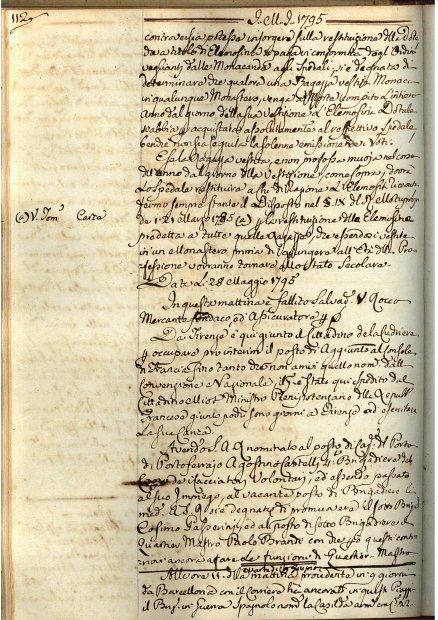 112
J. M. J. 1795
controversia potesse insorgere sulla restituzione della Dote
data a titolo di Elemosina
dalle Monacande agli Spedali, si è degnata di
determinare che qualora una Ragazza vestita Monaca
in qualunque Monastero, venga a Morte compito l'intiero
Anno dal giorno della sua vestizione l'Elemosina Dotale
s'abbia acquistata assolutamente al rispettivo Spedale,
benche non sia seguita la solenne emissione dei Voti:
E se la Ragazza vestita, e non professa muoja nel corso
dell'anno dal giorno della vestizione, come sopra, dovrà
lo Spedale restituire a chi di Ragione l'Elemosina ricevuta
fermo sempre stante il Disposto nel §. IX del
de' 21 Marzo 1785 (a) per la restituzione della Elemosina
predetta a tutte quelle Ragazze, che essendosi vestite
in un Monastero, prima di giungere all'Età della Pro-
fessione vorranno tornare allo stato Secolare.
Data Li 28 Maggio 1795
(a) V. Tom° Carta
In questa mattina è fallito Salvad. Rocco
Mercante fondaco ed Assicuratore
Da Firenze è qui giunto il Cittadino de la Cudriera
p. occupare pro interim il posto di Aggiunto al Console
di Francia
Convenzione Nazionale, il q.e è stato qui spedito dal
Cittadino Miot Ministro Plenipotenziario della Repub.
Francese giunto pochi sono giorni a Firenze ed esercitar
la sua Carica
Avendo S. A. R. nominato al posto di Cap. del Porto
di Portoferrajo Agostino Castelli Brigadiere dei
Cacciatori Volontarj, ed essendo passata
al suo Impiego, al vacante posto di Brigadiere la
med. R. A. S. si è degnata di promuovere il sotto Brig.
Cosimo Gasperini, ed al posto di sotto Brigadiere il
Quartier Mastro Paolo Brandi con che questi conti-
nui ancora a fare le funzioni di Quartier Mastro
Alle ore 11 della mattina procedente in 9 giorni
da Barcellona con il Corriere che ancorati in quest. Piagg.
il Brig. in Guerra Spagnolo nom. la Casilda arm. con C. 22